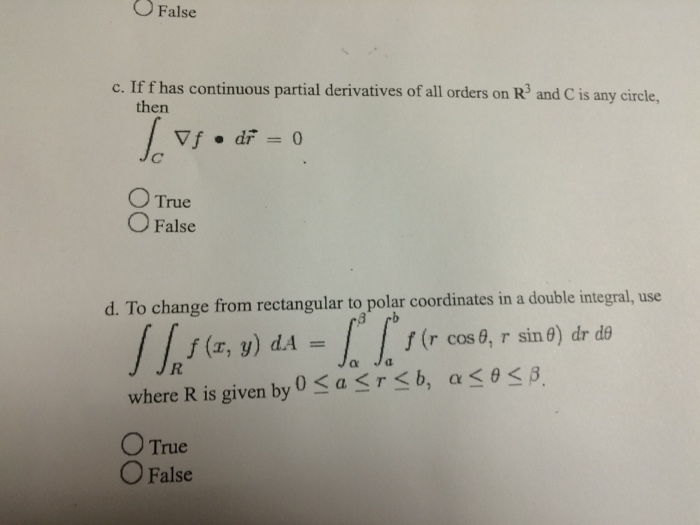 False
c. If f has continuous partial derivatives of all orders on R³ and C is any circle,
then
∫_C ∇f • dr⃗ = 0
True
False
d. To change from rectangular to polar coordinates in a double integral, use
∫∫_R f (x, y) dA = ∫_α^β ∫_a^b f (r cos θ, r sin θ) dr dθ
where R is given by 0 ≤ a ≤ r ≤ b, α ≤ θ ≤ β.
True
False